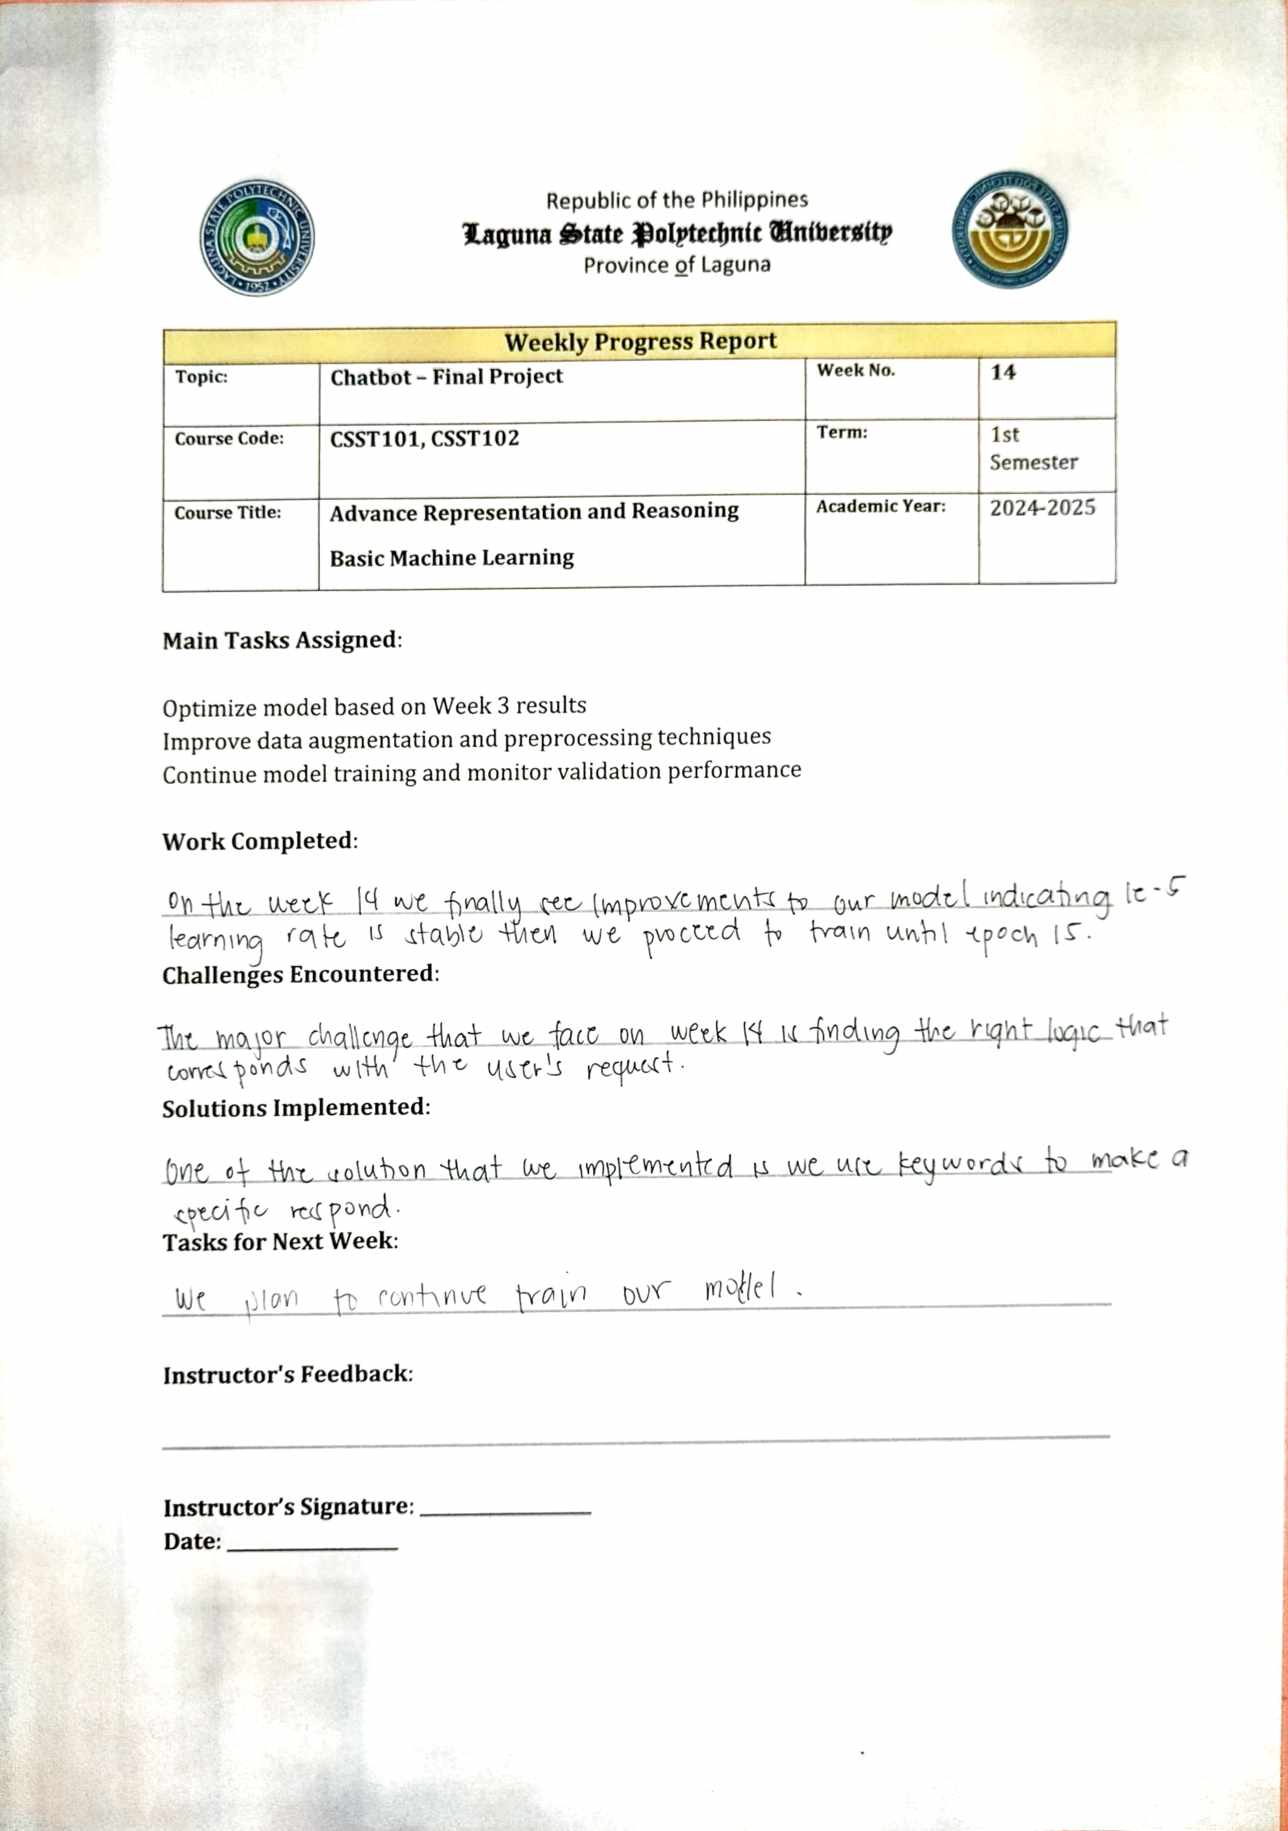 Republic of the Philippines
Laguna State Polytechnic University
Province of Laguna
LAGUNA STATE POLYTECHNIC UNIVERSITY
1952
Weekly Progress Report
Topic: Chatbot – Final Project Week No. 14
Course Code: CSST101, CSST102 Term: 1st
Semester
Course Title: Advance Representation and Reasoning Academic Year: 2024-2025
Basic Machine Learning
Main Tasks Assigned:
Optimize model based on Week 3 results
Improve data augmentation and preprocessing techniques
Continue model training and monitor validation performance
Work Completed:
On the week 14 we finally see improvements to our model indicating 1e-5
learning rate is stable then we proceed to train until epoch 15.
Challenges Encountered:
The major challenge that we face on week 14 is finding the right logic that
corresponds with the user's request.
Solutions Implemented:
One of the solution that we implemented is we use keywords to make a
specific respond.
Tasks for Next Week:
We plan to continue train our model.
Instructor's Feedback:
Instructor's Signature:
Date: